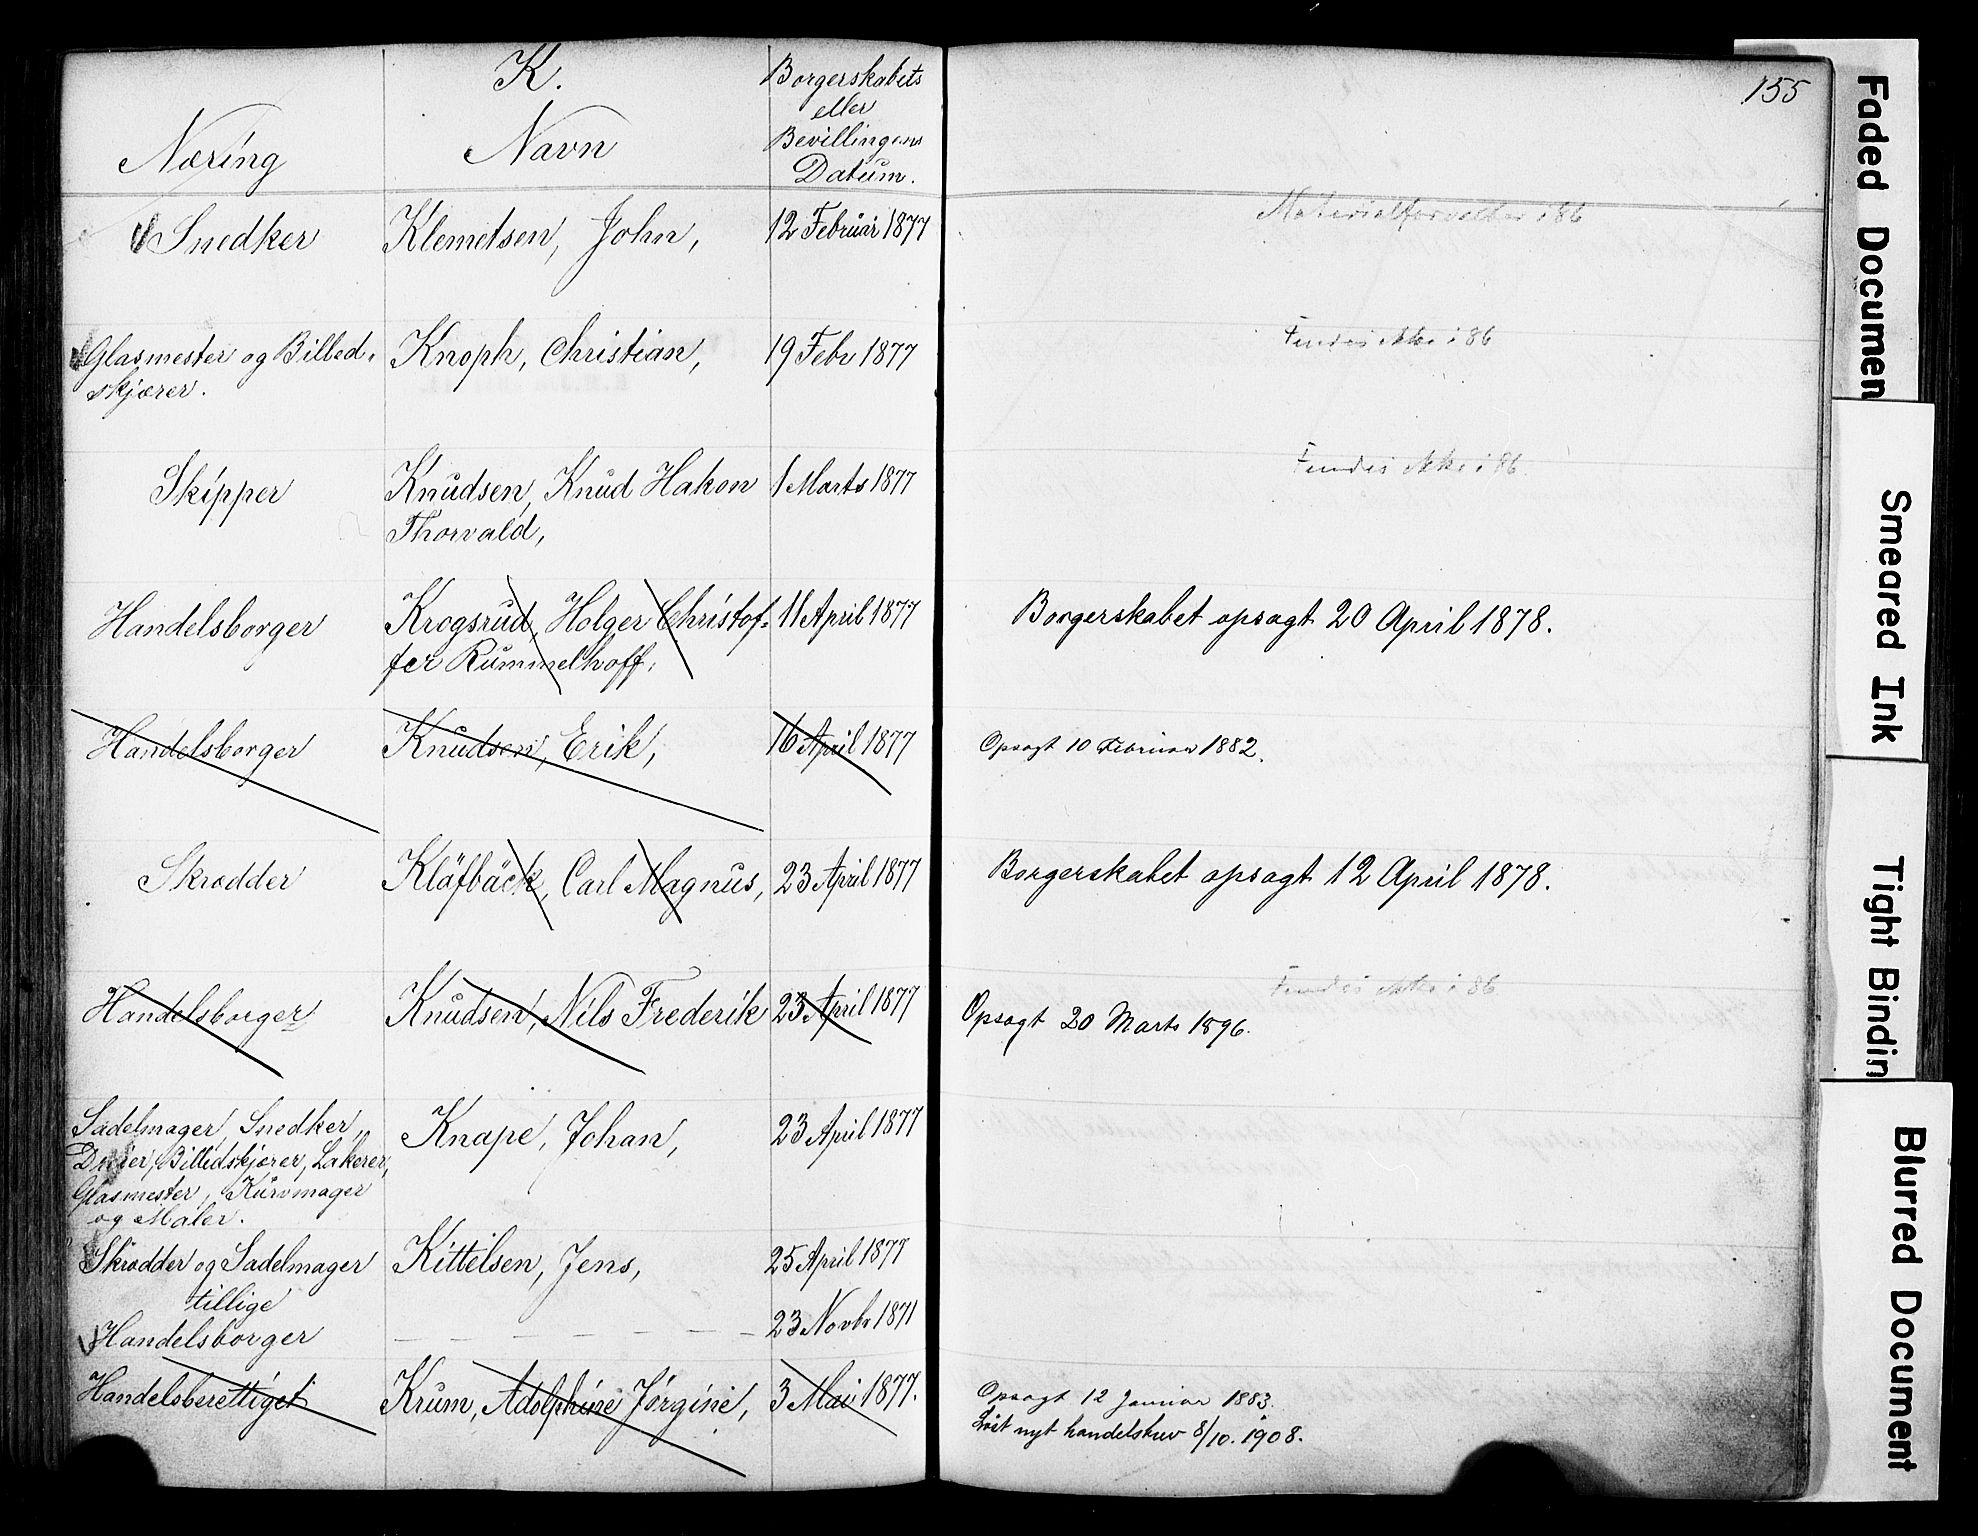 K.
Næring
Navn
Borgerskabets
eller
Bevillingens
Datum.
155
Snedker
Klemetsen, John,
12 Februar 1877
Materialforvalter i 86
Glasmester og Billed-
skjærer.
Knoph, Christian,
19 Febr 1877
Findes ikke i 86
Skipper
Knudsen, Knud Hakon
Thorvald,
1 Marts 1877
Findes ikke i 86
Handelsborger
Krogsrud, Holger Christof-
fer Rummelhoff,
11 April 1877
Borgerskabet opsagt 20 April 1878.
Handelsborger
Knudsen, Erik,
16 April 1877
Opsagt 10 Februar 1882.
Skrædder
Kläfbäck, Carl Magnus,
23 April 1877
Borgerskabet opsagt 12 April 1878.
Handelsborger
Knudsen, Nils Frederik
23 April 1877
Findes ikke i 86
Opsagt 20 Marts 1896.
Sadelmager, Snedker,
Dreier, Billedskjærer, Lakerer,
Glasmester, Kurvmager
og Maler.
Knape, Johan,
23 April 1877
Skrædder og Sadelmager
tillige
Handelsborger
Kittelsen, Jens,
25 April 1877
23 Novbr 1871
Handelsberettiget
Krum, Adolphine Jørgine,
3 Mai 1877.
Opsagt 12 Januar 1883.
Löst nyt handelsbrev 8/10. 1908.
Faded Documen
Smeared Ink
Tight Bindin
Blurred Document